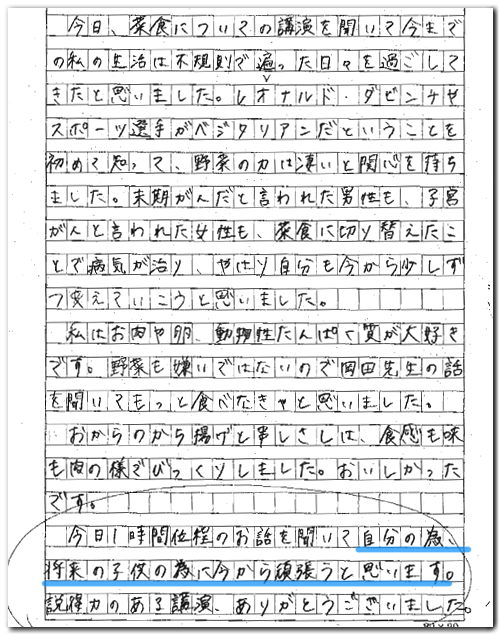 今日、菜食についての講演を聞いて今まで
の私の生活は不規則で偏った日々を過ごして
きたと思いました。レオナルド・ダビンチや
スポーツ選手がベジタリアンだということを
初めて知って、野菜の力は凄いと関心を持ち
ました。末期がんだと言われた男性も、子宮
がんと言われた女性も、菜食に切り替えたこ
とで病気が治り、やはり自分も今から少しず
つ変えていこうと思いました。
私はお肉や卵、動物性たんぱく質が大好き
です。野菜も嫌いではないので岡田先生の話
を聞いてもっと食べなきゃと思いました。
おからのから揚げと串しさしは、食感も味
も肉の様でびっくりしました。おいしかった
です。
今日1時間位程のお話を聞いて自分の為、
将来の子供の為に今から頑張うと思います。
説得力のある講演、ありがとうございました。